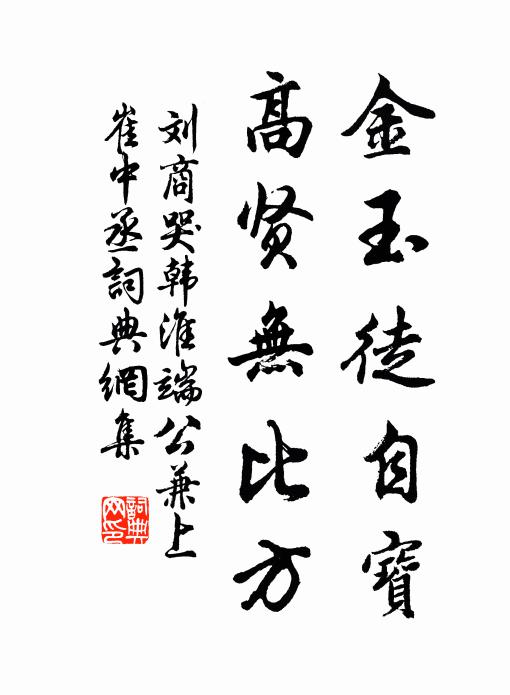 金玉徒自寶
高贤無比方
刘商哭韩淮端公兼上
崔中丞詞典網集
詞典网印